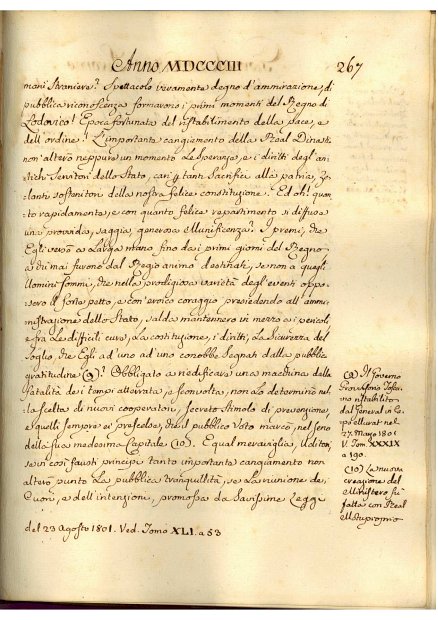 Anno MDCCCIII
267
mani Straniere? Spettacolo veramente degno d'ammirazione, di
pubblica riconoscenza formarono i primi momenti del Regno di
Lodovico! Epoca fortunata del ristabilimento della pace, e
dell'ordine! L'importante cangiamento della Real Dinastia
non alterò neppure un momento le Speranze, e i diritti degl'an
tichi Servitori dello Stato, cari p tanti Sacrifici alla patria, Ze
lanti sostenitori della nostra felice constituzione. Ed oh! quan
to rapidamente, e con quanto felice repartimento si diffuse
una provvida, saggia, generosa Munificenza! I premi, che
Egli versò a Larga mano fino dai primi giorni del Regno
a chi mai furono dal Regio animo destinati, se non a quegli
Uomini Sommi, che nella prodigiosa varietà degl'eventi oppo-
sero il forte petto, e con eroico coraggio, presiedendo all'ammi
nistrazione dello Stato, salda mantennero in mezzo ai pericoli,
e fra Le difficili cure, La costituzione, i diritti, La Sicurezza del
Soglio, che Egli ad uno ad uno conobbe Segnati dalla pubblica
gratitudine (9)? Obbligato a riedificare una macchina dalla
fatalità dei tempi alterata, e sconvolta, non Lo determinò nel
la scelta di nuovi cooperatori, secreto Stimolo di prevenzione,
e quelli sempre ei prescelse, che il pubblico Voto marcò nel seno
della sua medesima Capitale (10). E qual meraviglia, Uditori,
se in così fausti principi tanto importante cangiamento non
alterò punto La pubblica tranquillità, se La riunione dei
Cuori, e dell'intenzioni, promossa da Savissime Leggi
(9) Il Governo
Provvisorio Tosca
no ristabilito
dal General in Ca
po nel
27. Marzo 1801
V. Tom. XXXIX
a 190.
(10) La nuova
creazione del
Ministero fù
fatta con Real
Motuproprio
del 23 Agosto 1801. Ved. Tomo XLI. a 53